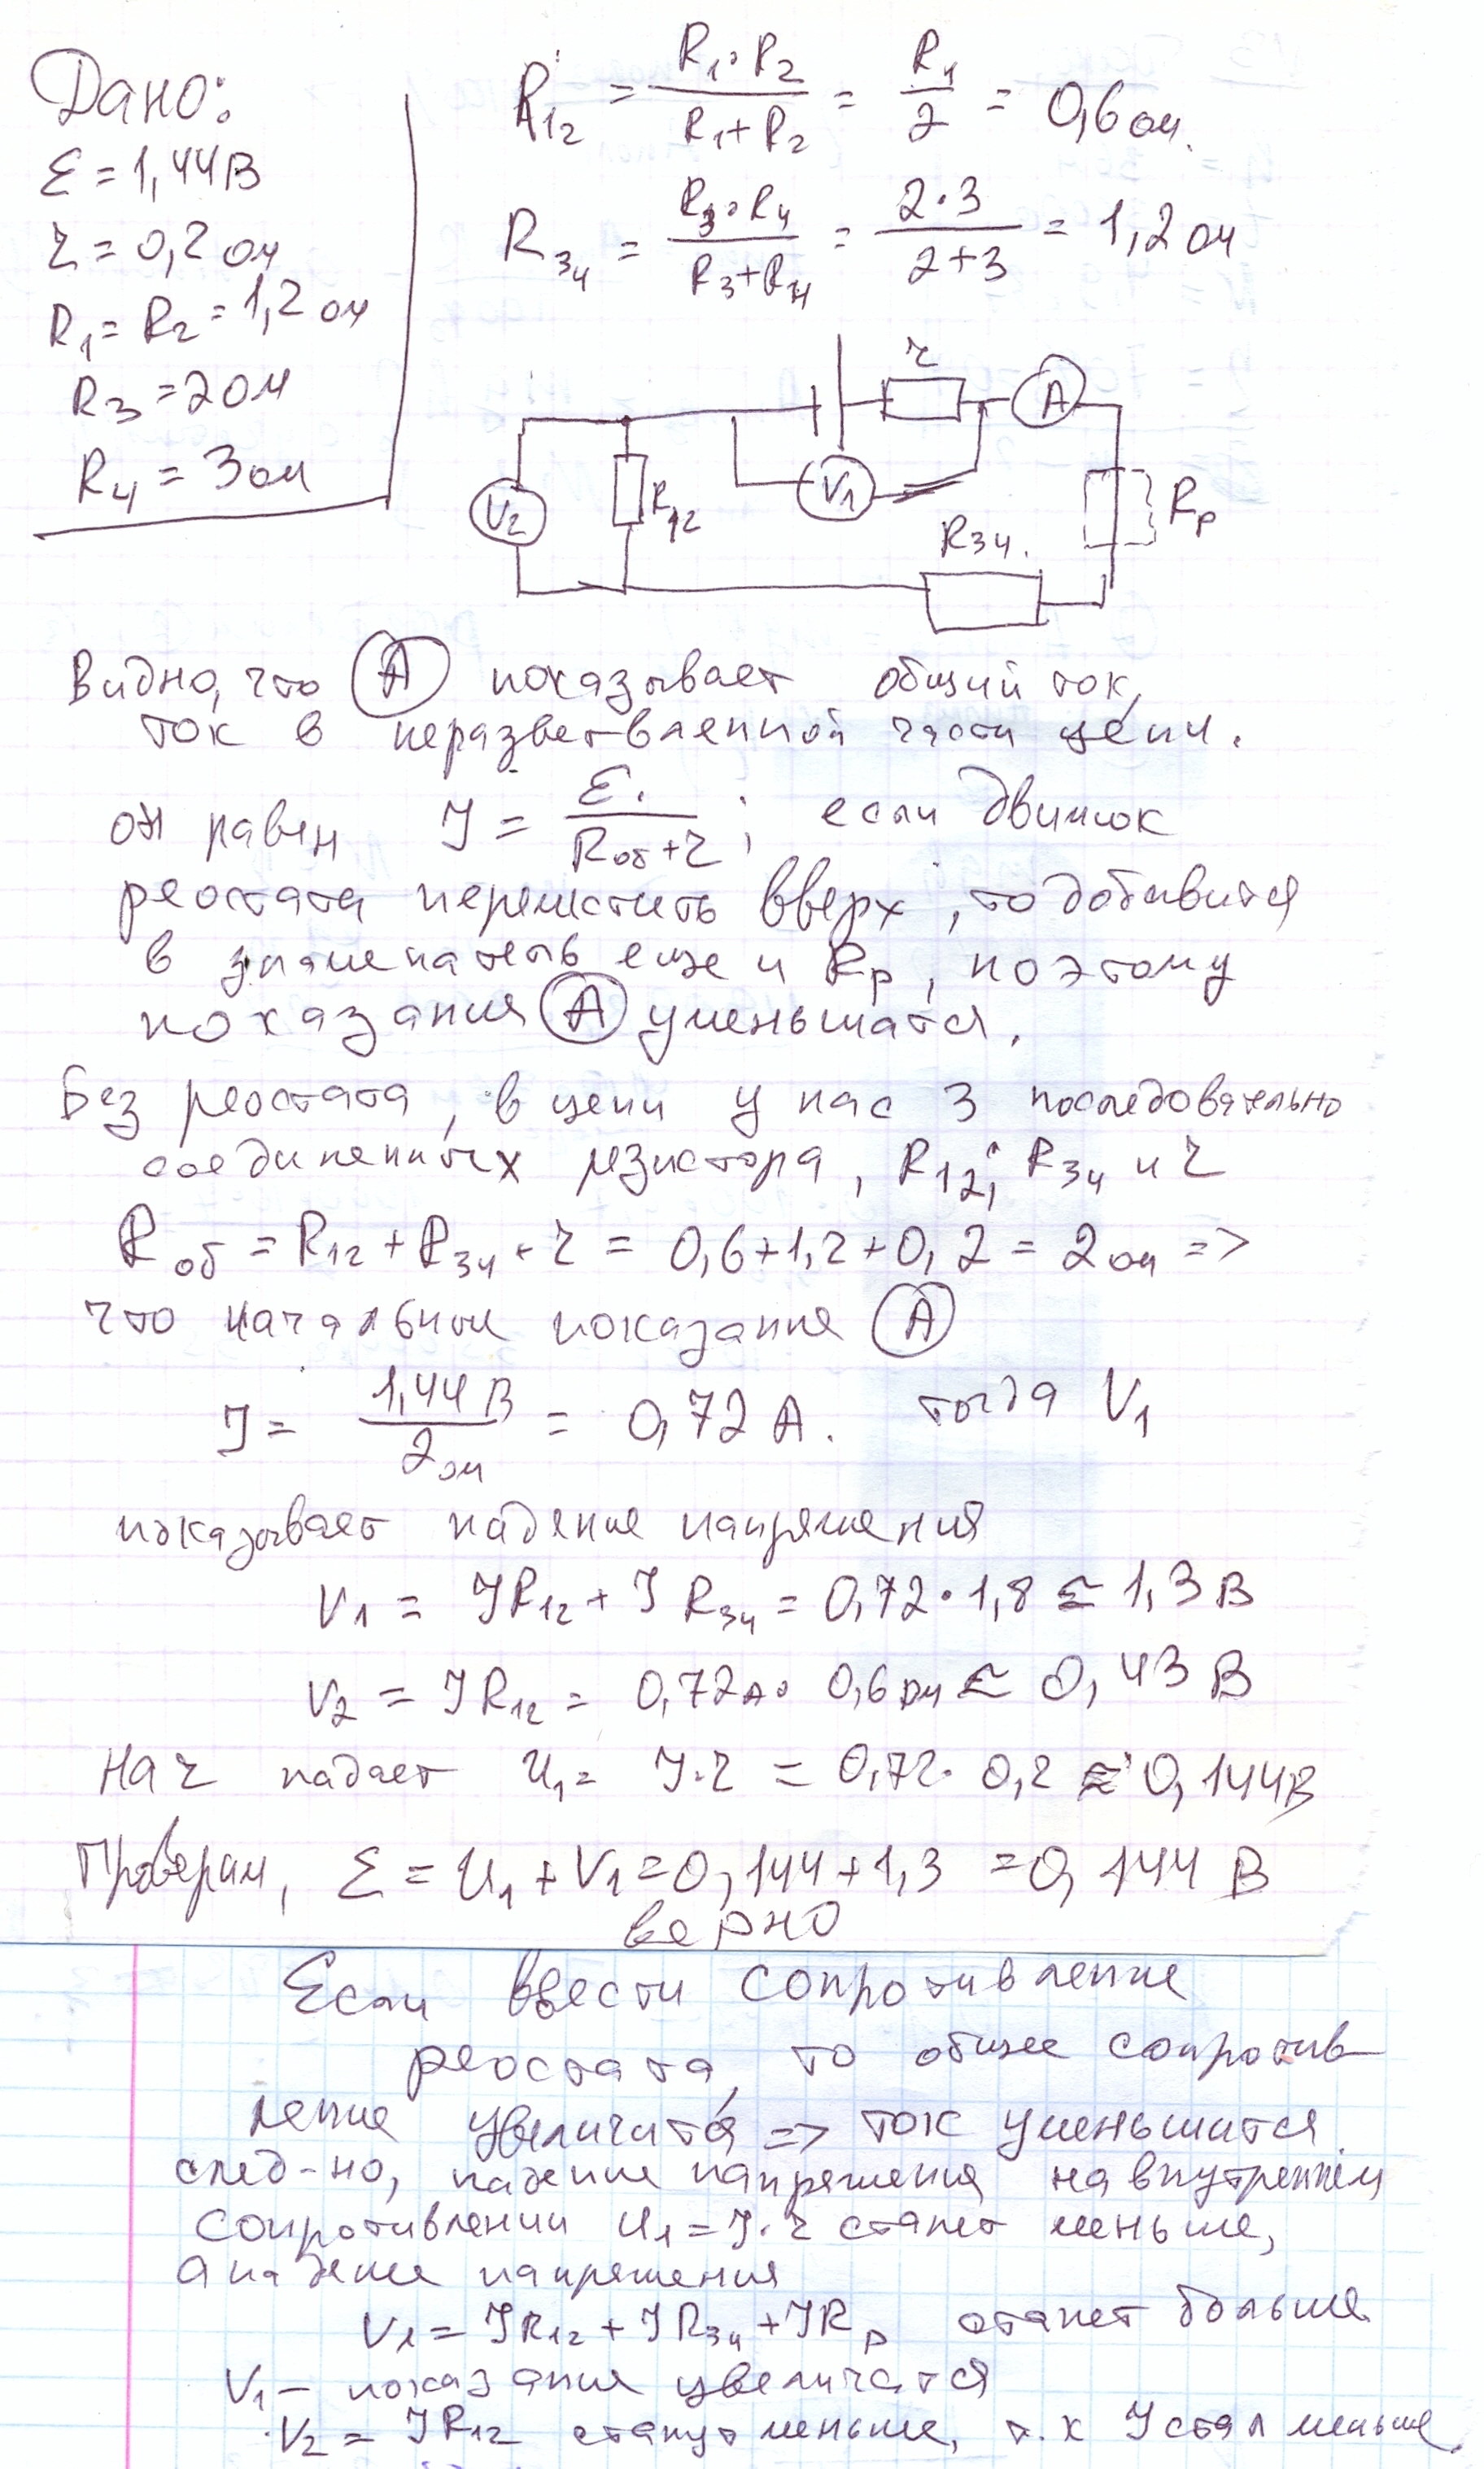 Дано:
ℰ = 1,44В
r = 0,2 ом
R1 = R2 = 1,2 ом
R3 = 2 ом
R4 = 3 ом
R12 = R1·R2 / R1+R2 = R1/2 = 0,6 ом.
R34 = R3·R4 / R3+R4 = 2·3 / 2+3 = 1,2 ом
r
A
V1
V2
R12
Rр
R34.
Видно, что A показывает общий ток,
ток в неразветвленной части цепи.
он равен J = ℰ / Rоб+r ; если движок
реостата переместить вверх, то добавится
в знаменатель еще и Rр, поэтому
показания A уменьшатся.
Без реостата, в цепи у нас 3 последовательно
соединенных резистора, R12; R34 и r
Rоб = R12 + R34 + r = 0,6+1,2+0,2 = 2 ом =>
что начальное показание A
J = 1,44 В / 2 ом = 0,72 А. тогда V1
показывает падение напряжения
V1 = JR12 + J R34 = 0,72·1,8 ≈ 1,3 В
V2 = JR12 = 0,72А· 0,6 ом ≈ 0,43 В
На r падает U1 = J·r = 0,72· 0,2 ≈ 0,144В
Проверим, ℰ = U1 + V1 = 0,144+1,3 = 0,144 В
верно
Если ввести сопротивление
реостата, то общее сопротив-
ление увеличится => ток уменьшится
след-но, падение напряжения на внутреннем
сопротивлении U1 = J·r станет меньше,
а падение напряжения
V1 = JR12 + JR34 + JRр станет больше
V1 – показания увеличатся
V2 = JR12 станут меньше, т.к J стал меньше.